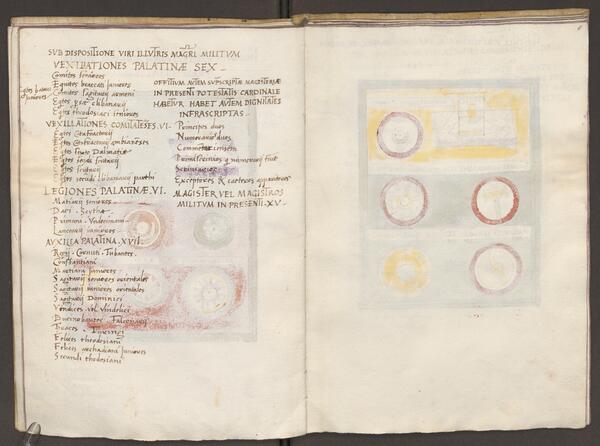 SVB DISPOSITIONE VIRI ILLVTRIS MAGRI MILITVM
VEXILLATIONES PALATINÆ SEX
Comites seniores
Equites braccati Juniores
Comites sagitarij armeni
Egtes braccati
Juniores
Egtes theodosiaci seniores
VEXILLATIONES COMITATESES. VI
Egtes Catafractarij
Egtes Catafractarij ambianeses
Egtes sexto Dalmatae
Egtes scutarij
LEGIONES PALATINÆ. VI
Matiarij seniores
Daci . Scythæ
Primani . Vndecimani
Lanciarij iuniores
AVXILIA PALATINA. XVII
Regij . Cornuti . Tubantes
Constantiani
Mattiarij Juniores
Sagitarij seniores orientales
Sagitarij iuniores orientales
Sagitarij Dominici
Vendices vel Vindelici
Bucinobantes Falconarij
Traces
Felices theodosiani
Felices archadiani Juniores
Secundi theodosiani
OFFITIVM AVTEM SVPSCRIPTÆ MAGISTERIÆ
IN PRESENTI POTESTATIS CARDINALE
HABETVR HABET AVTEM DIGNITATES
INFRASCRIPTAS
Principes duos
Numerarios duos
Commentariensem
Scriniarios
Exceptores & cæteros apparitores
MAGISTER VEL MAGISTROS
MILITVM IN PRESENTI. XV